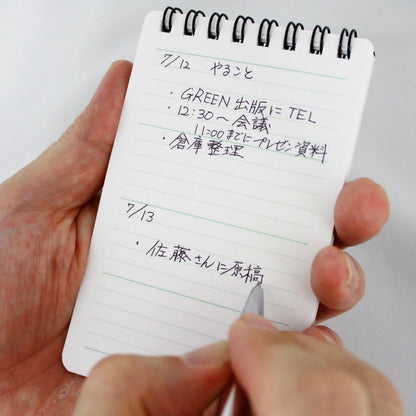 7/12 やること
・GREEN出版にTEL
・12:30〜会議
11:00までにプレゼン資料
・倉庫整理
7/13
・佐藤さんに原稿